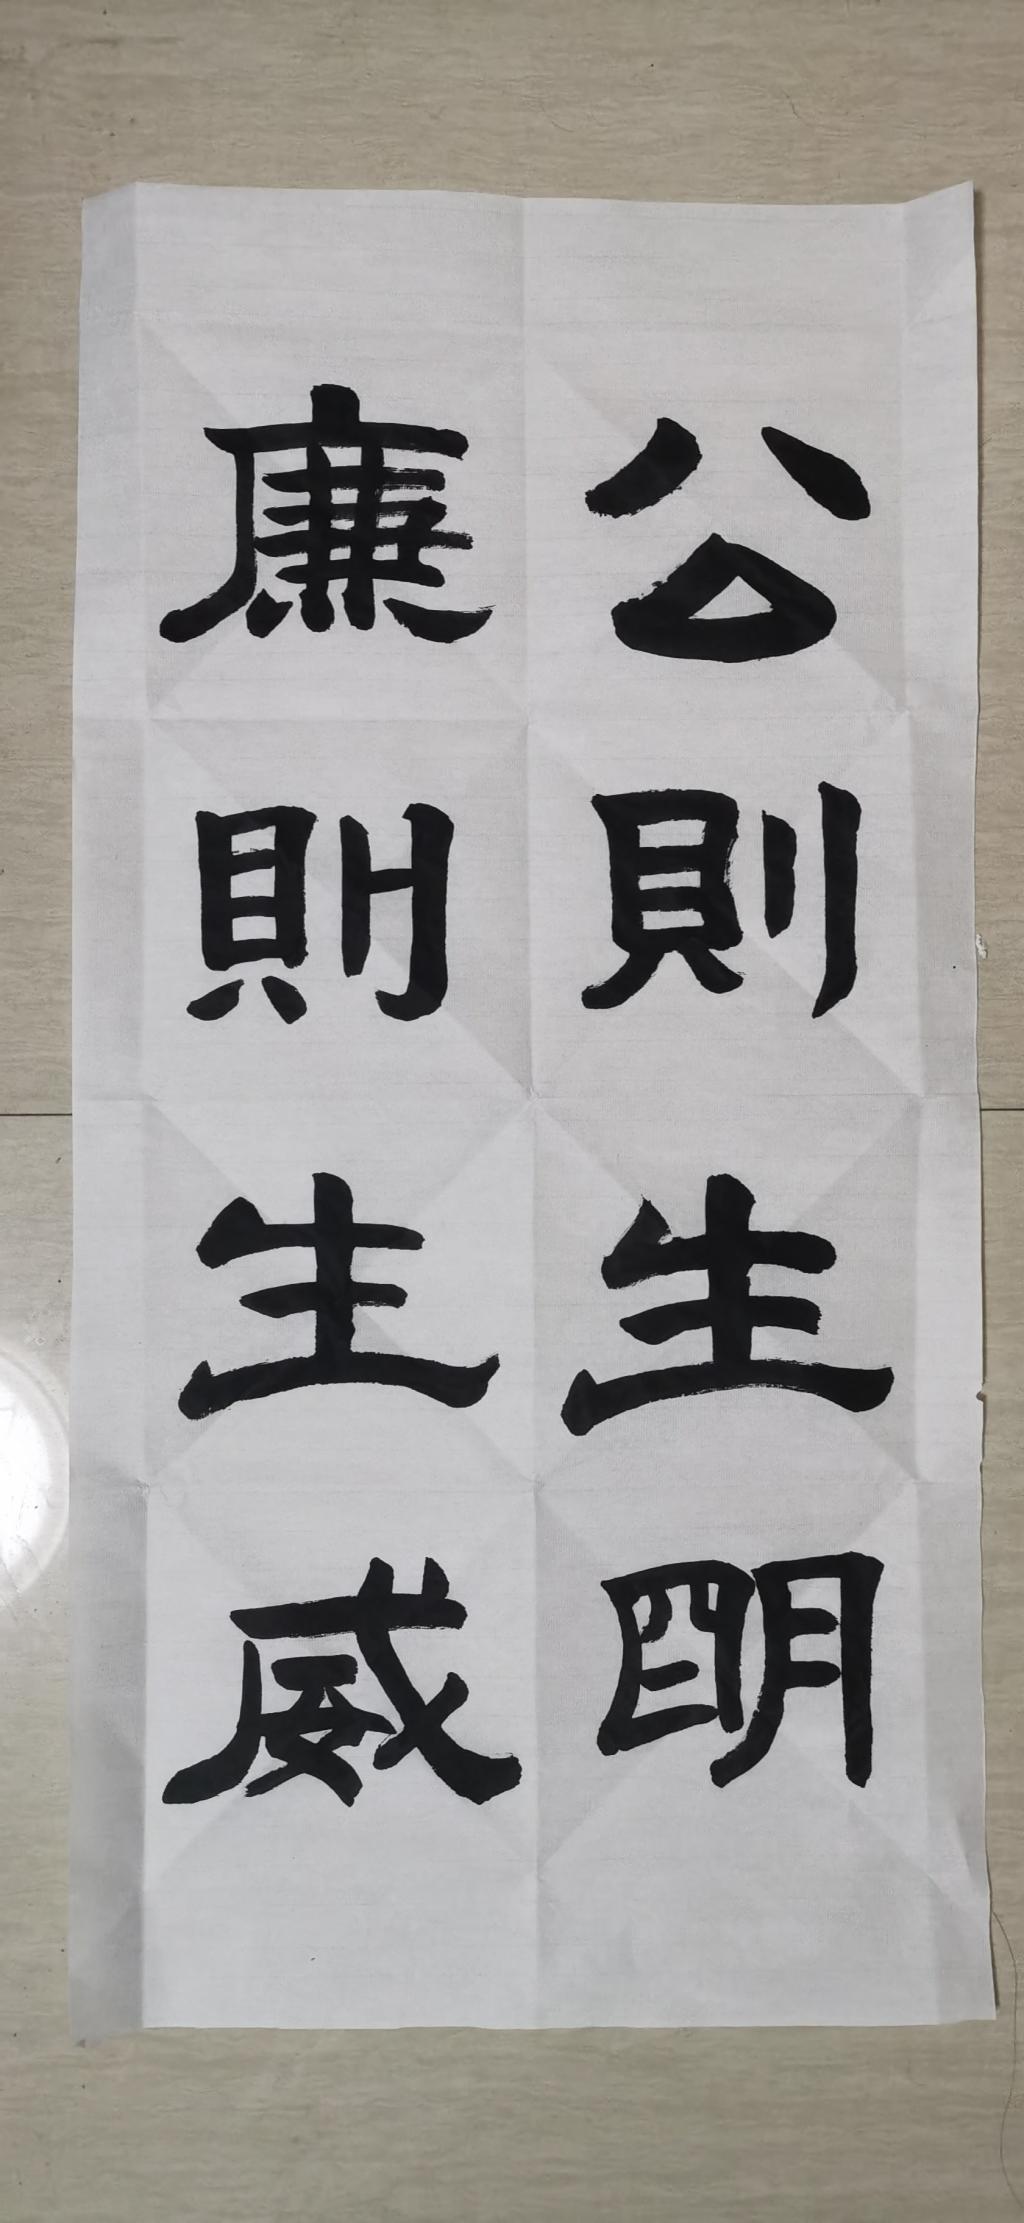 公則生明
廉則生威